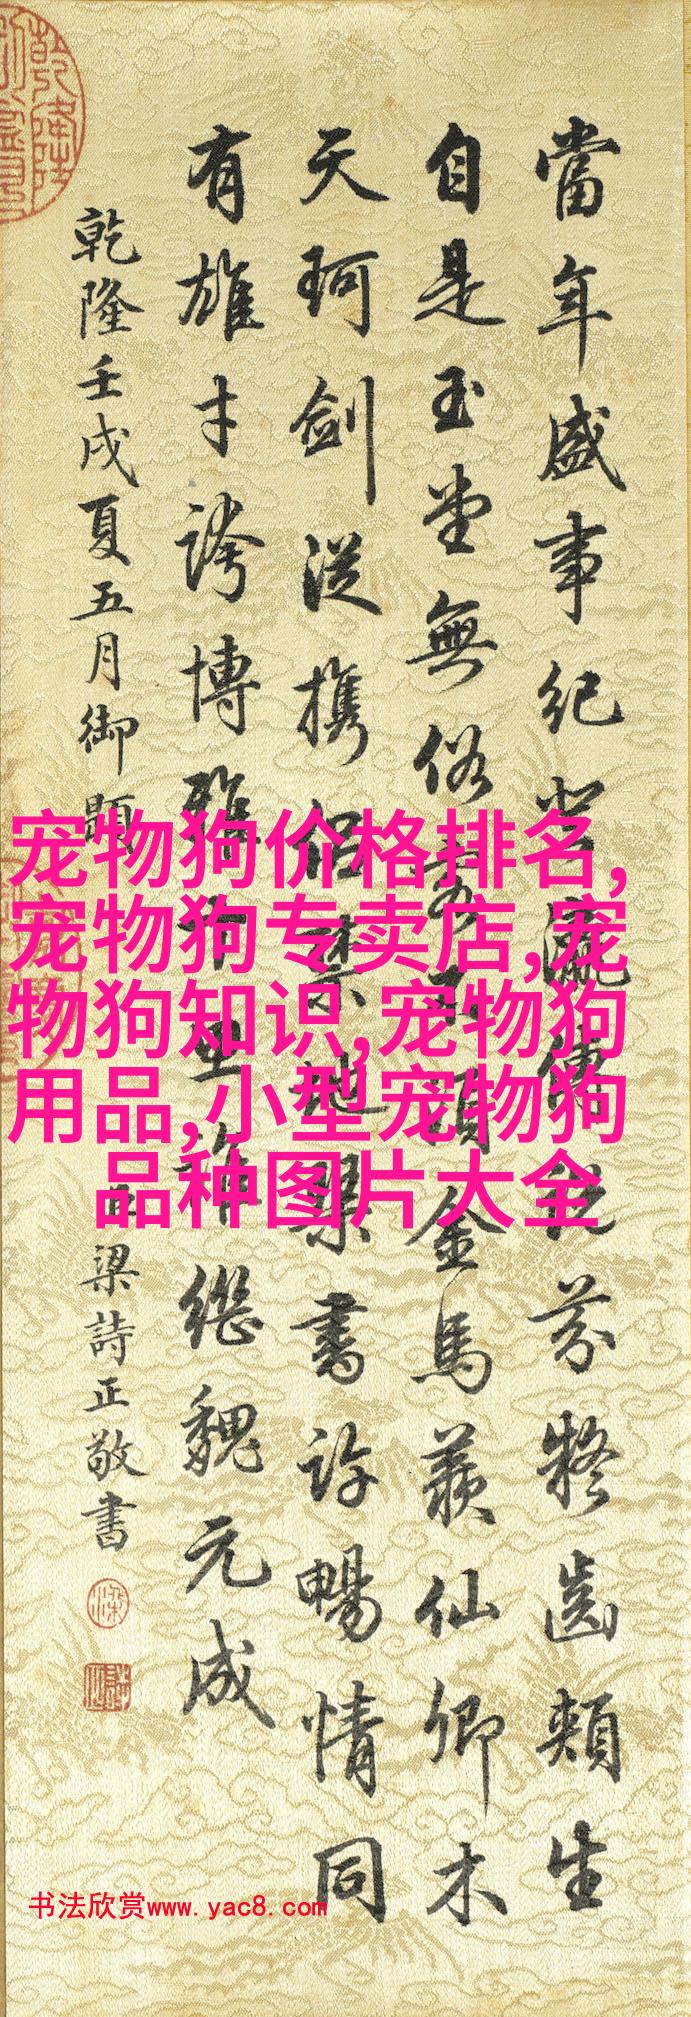 當年盛事紀登瀛傳說芬粘齒頰生
自是玉堂無俗客不須金馬羨仙卿木
天珂劍從攜侶禁地琴書許暢情同
有雄才誇博雅 繼魏元成
乾隆壬戌夏五月御題
臣梁詩正敬書
宠物狗价格排名,
宠物狗专卖店,宠
物狗知识,宠物狗
用品,小型宠物狗
品种图片大全
书法欣赏www.yac8.com